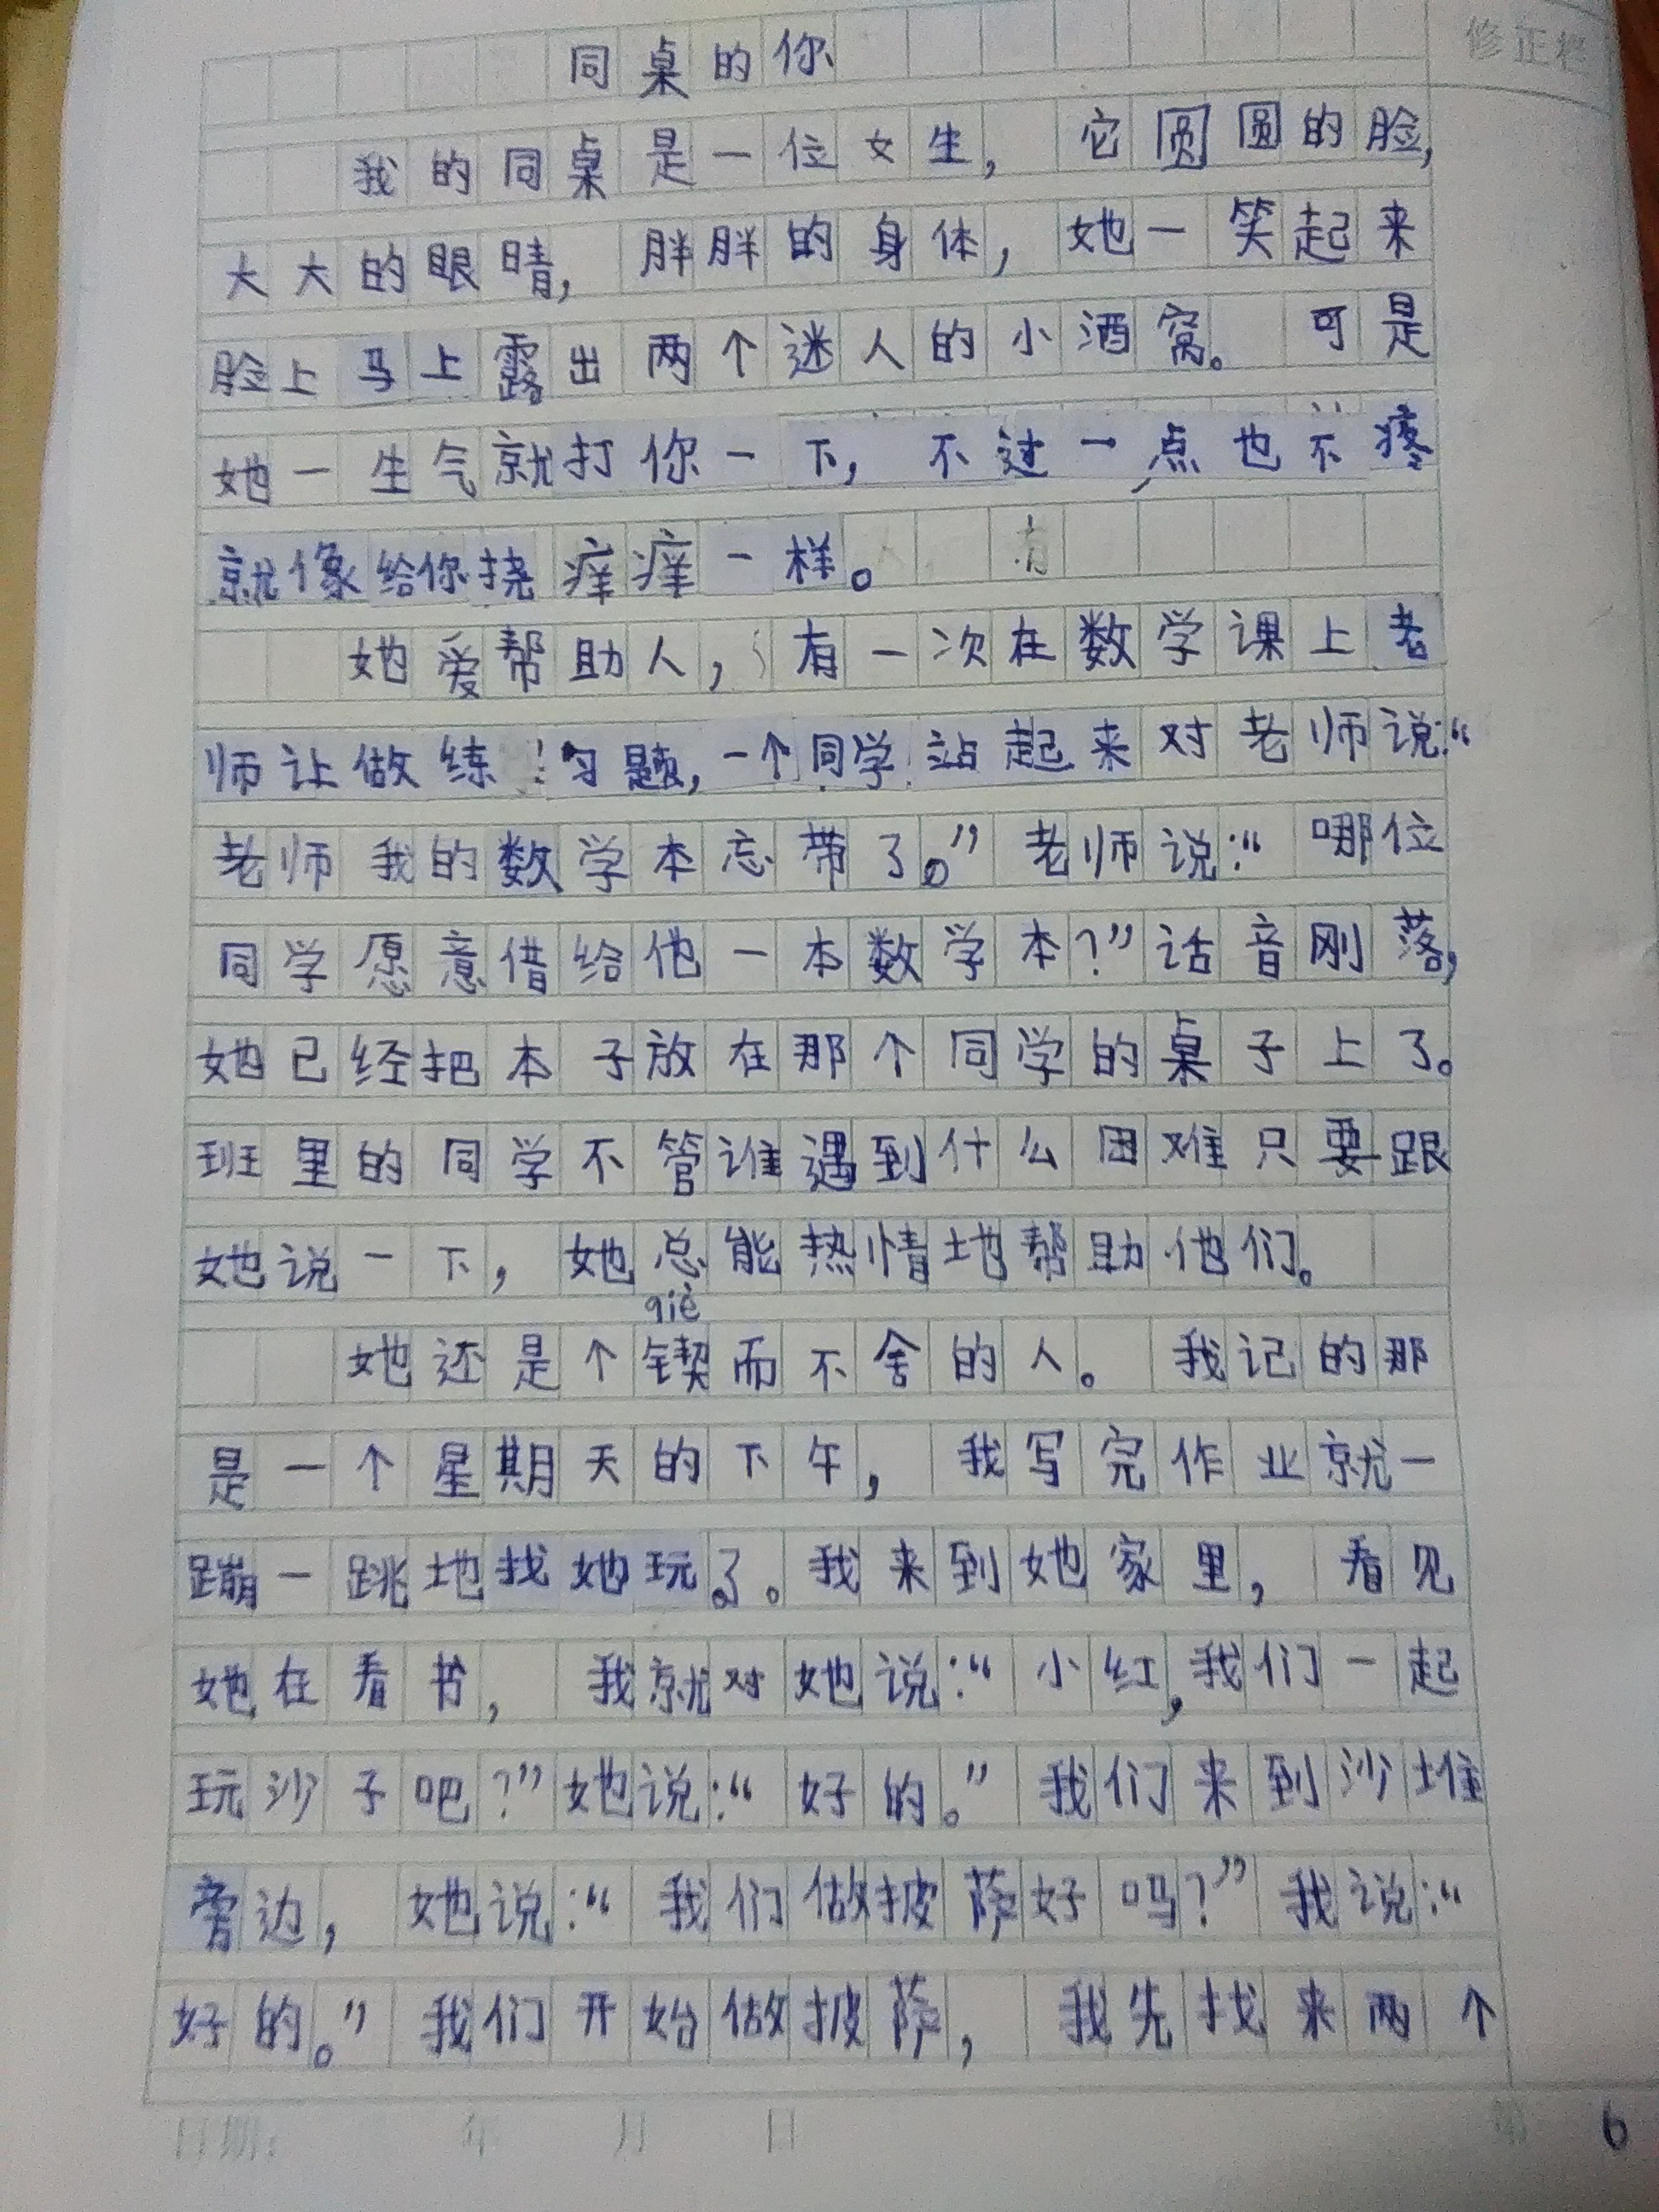 修正栏
同桌的你
我的同桌是一位女生，它圆圆的脸，
大大的眼睛，胖胖的身体，她一笑起来
脸上马上露出两个迷人的小酒窝。可是
她一生气就打你一下，不过一点也不疼
就像给你挠痒痒一样。
她爱帮助人，有一次在数学课上老
师让做练习题，一个同学站起来对老师说：“
老师我的数学本忘带了。”老师说：“哪位
同学愿意借给他一本数学本？”话音刚落，
她已经把本子放在那个同学的桌子上了。
班里的同学不管谁遇到什么困难只要跟
她说一下，她总能热情地帮助他们。
qiè
她还是个锲而不舍的人。我记的那
是一个星期天的下午，我写完作业就一
蹦一跳地找她玩了。我来到她家里，看见
她在看书，我就对她说：“小红，我们一起
玩沙子吧？”她说：“好的。”我们来到沙堆
旁边，她说：“我们做披萨好吗？”我说：“
好的。”我们开始做披萨，我先找来两个
日期： 年 月 日
6